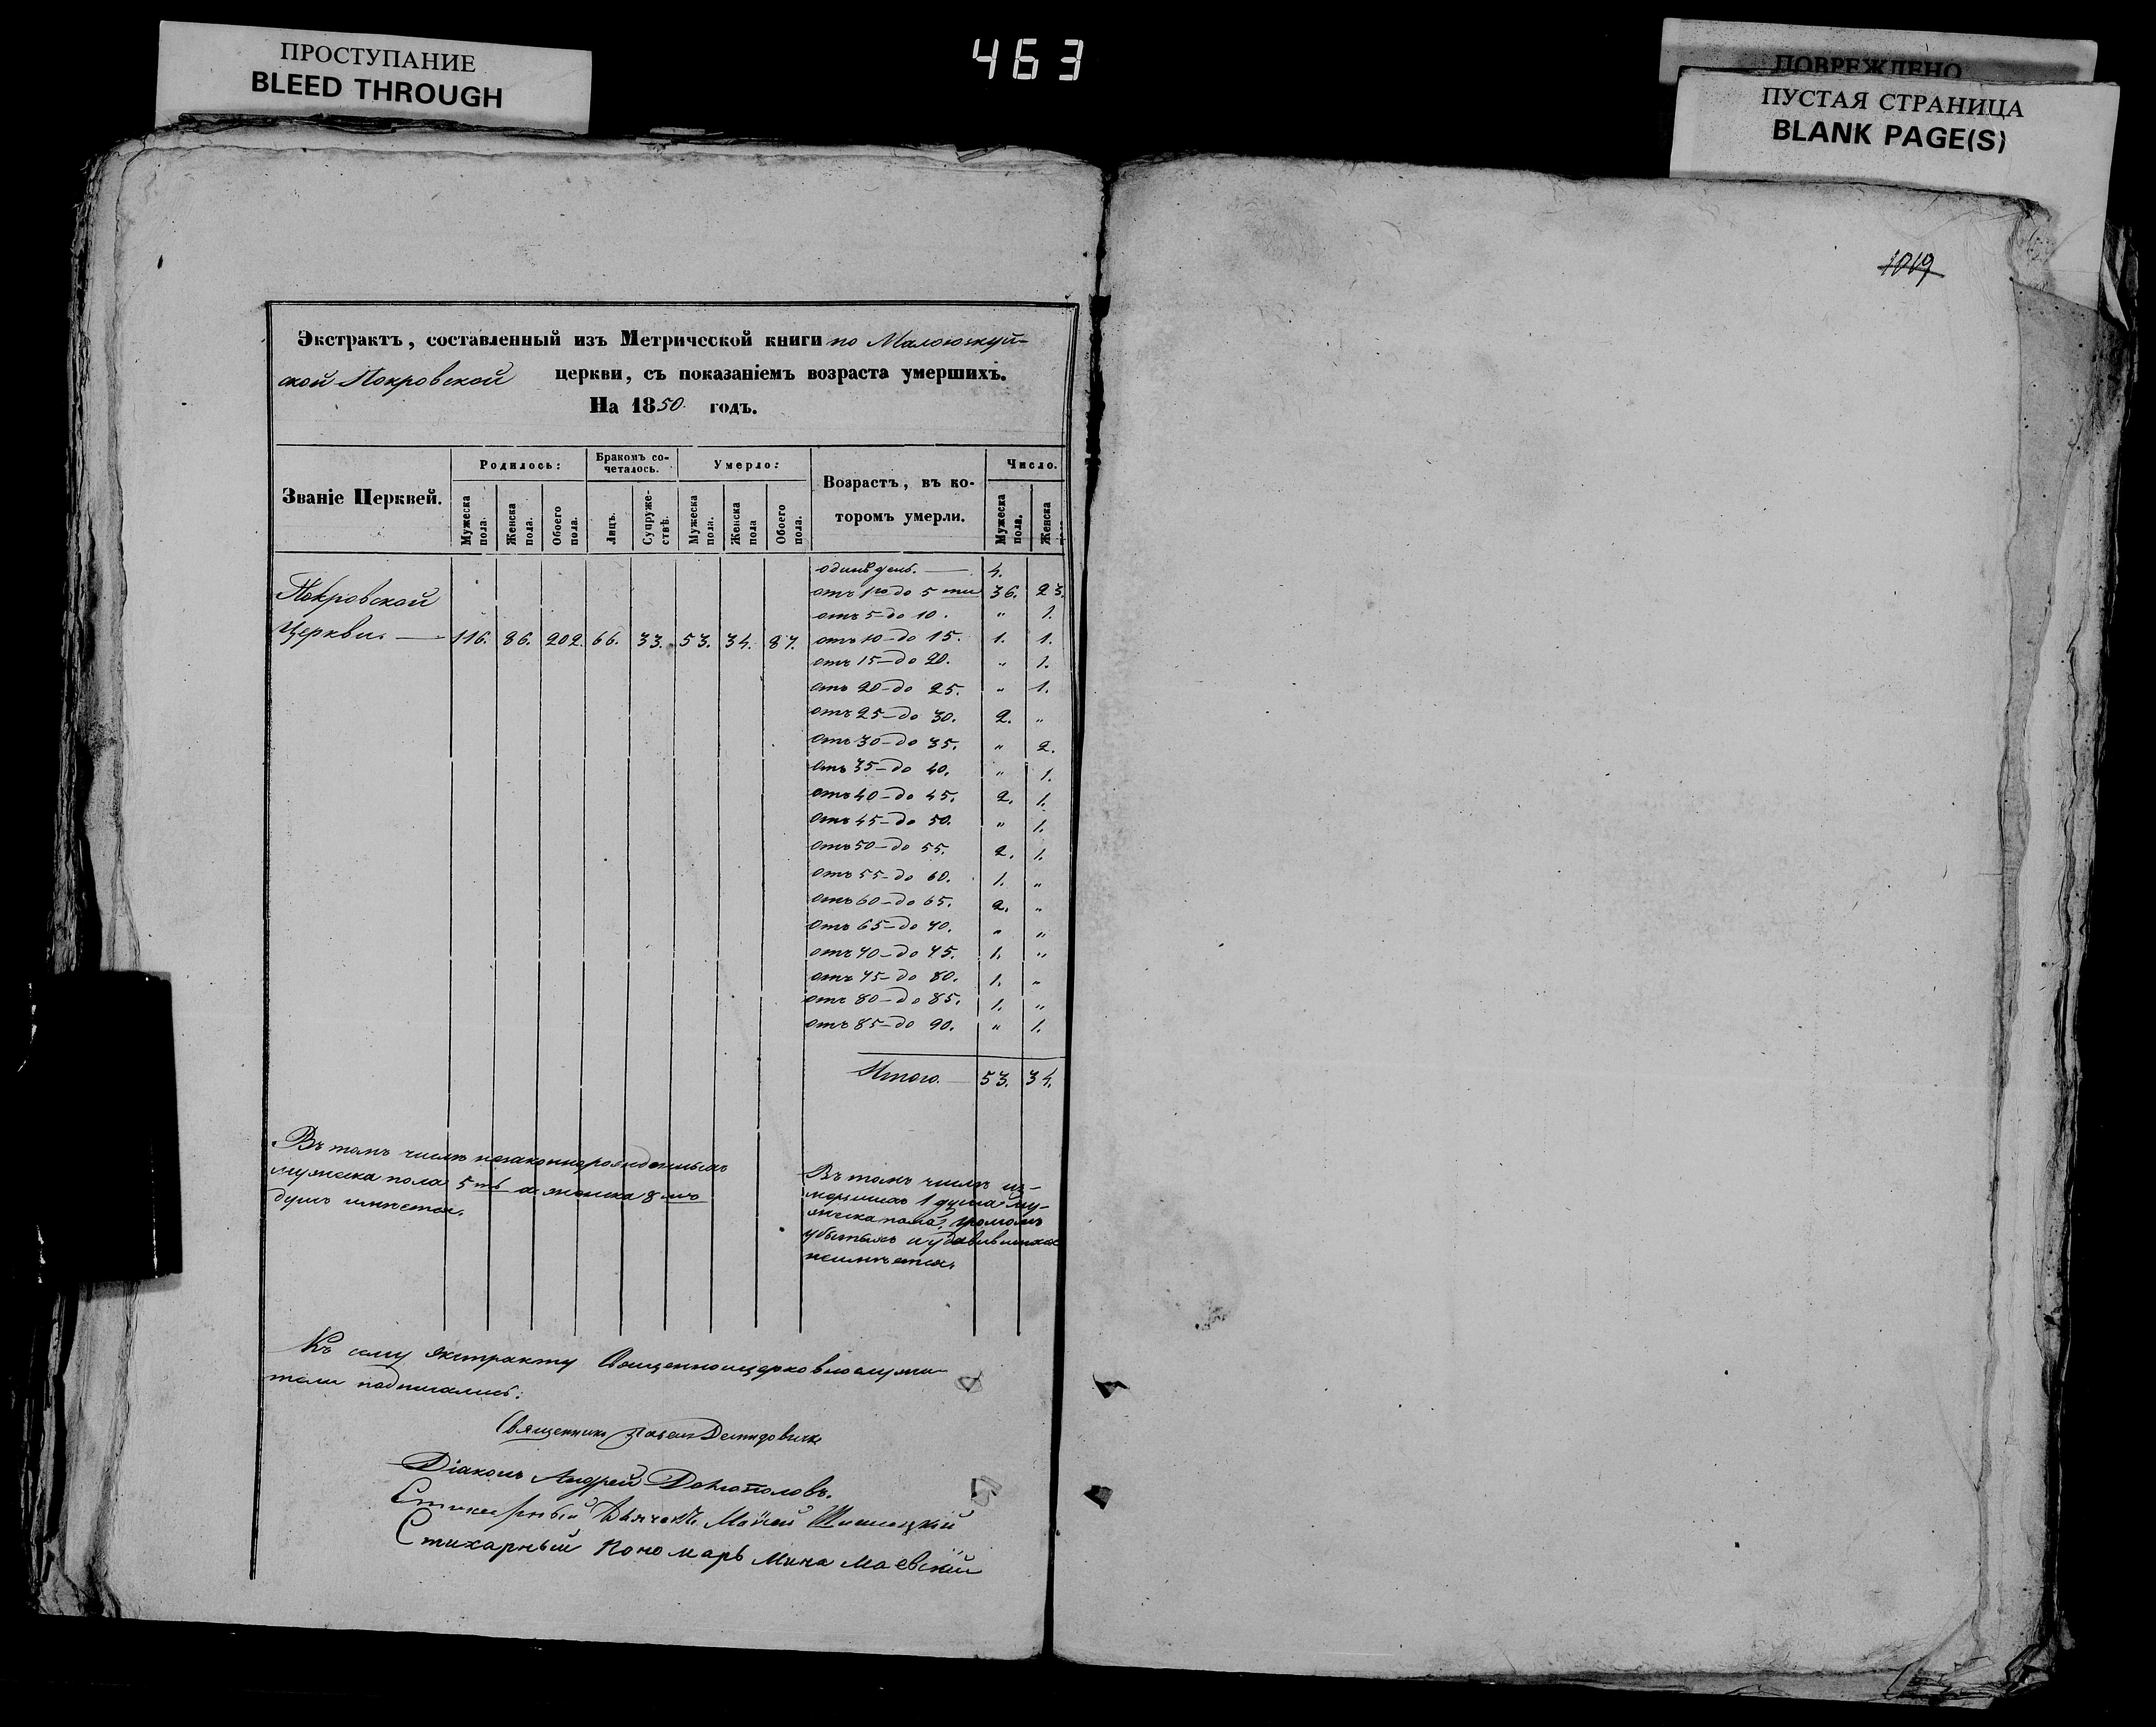 ПРОСТУПАНИЕ
BLEED THROUGH
463
ПОВРЕЖДЕНО
ПУСТАЯ СТРАНИЦА
BLANK PAGE(S)
1019
Экстрактъ, составленный изъ Метрической книги по Малоюкуй-
ской Покровской церкви, съ показаніемъ возраста умершихъ.
На 1850 годъ.
Званіе Церквей.
Родилось:
Бракомъ со-
четалось.
Умерло:
Возрастъ, въ ко-
торомъ умерли.
Число.
Мужеска пола.
Женска пола.
Обоего пола.
Лицъ.
Супруже-
ствъ.
Мужеска пола.
Женска пола
Обоего пола.
Мужеска пола.
Женска
Покровской
Церкви. — 116. 86. 202. 66. 33. 53. 34. 87.
одинъ день. — 4.
отъ 1го до 5ти 36. 23.
отъ 5 – до 10. " 1.
отъ 10 – до 15. 1. 1.
отъ 15 – до 20. " 1.
отъ 20 – до 25. " 1.
отъ 25 – до 30. 2. "
отъ 30 – до 35. " 2.
отъ 35 – до 40. " 1.
отъ 40 – до 45. 2. 1.
отъ 45 – до 50. " 1.
отъ 50 – до 55. 2. 1.
отъ 55 – до 60. 1. "
отъ 60 – до 65. 2. "
отъ 65 – до 70. " "
отъ 70 – до 75. 1. "
отъ 75 – до 80. 1. "
отъ 80 – до 85. 1. "
отъ 85 – до 90. " 1.
Итого. — 53. 34.
Въ томъ числѣ незаконнорожденныхъ
мужеска пола 5ть а женска 8мь
душъ имѣется.
Въ томъ числѣ из-
мерзшихъ 1 душа му-
жеска пола, громомъ
убитыхъ и удавившихся
неимѣется.
Къ сему экстракту Священноцерковнослужи-
тели подписались:
Священникъ Павелъ Демидовичъ
Діаконъ Андрей
Стихарный Дьячекъ
Стихарный Пономарь Мина Маевскій